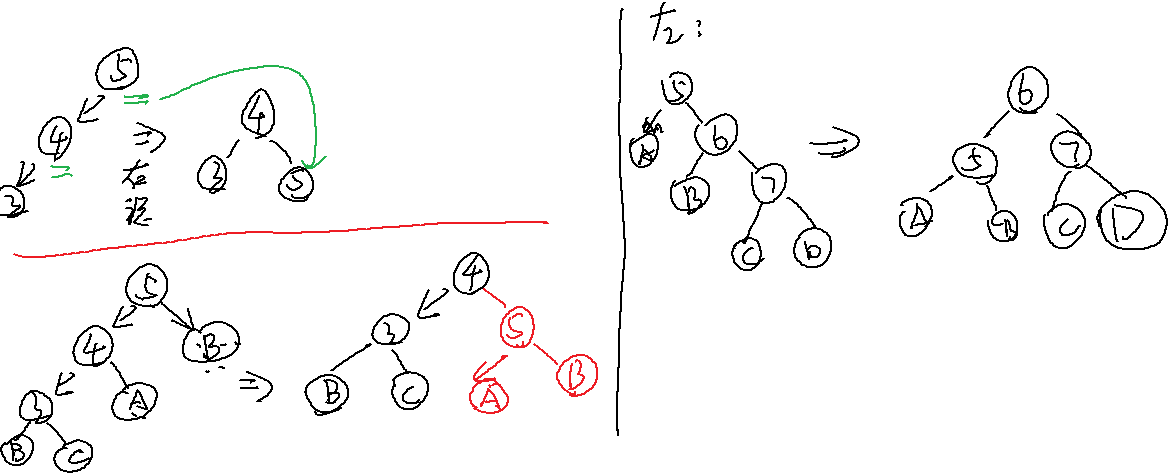 5
4
3
⇒
右
旋
4
3 5
5
4 B
3 A
B C
⇒
4
3 5
B C A B
5
A 6
B 7
C D
⇒
6
5 7
A B C D